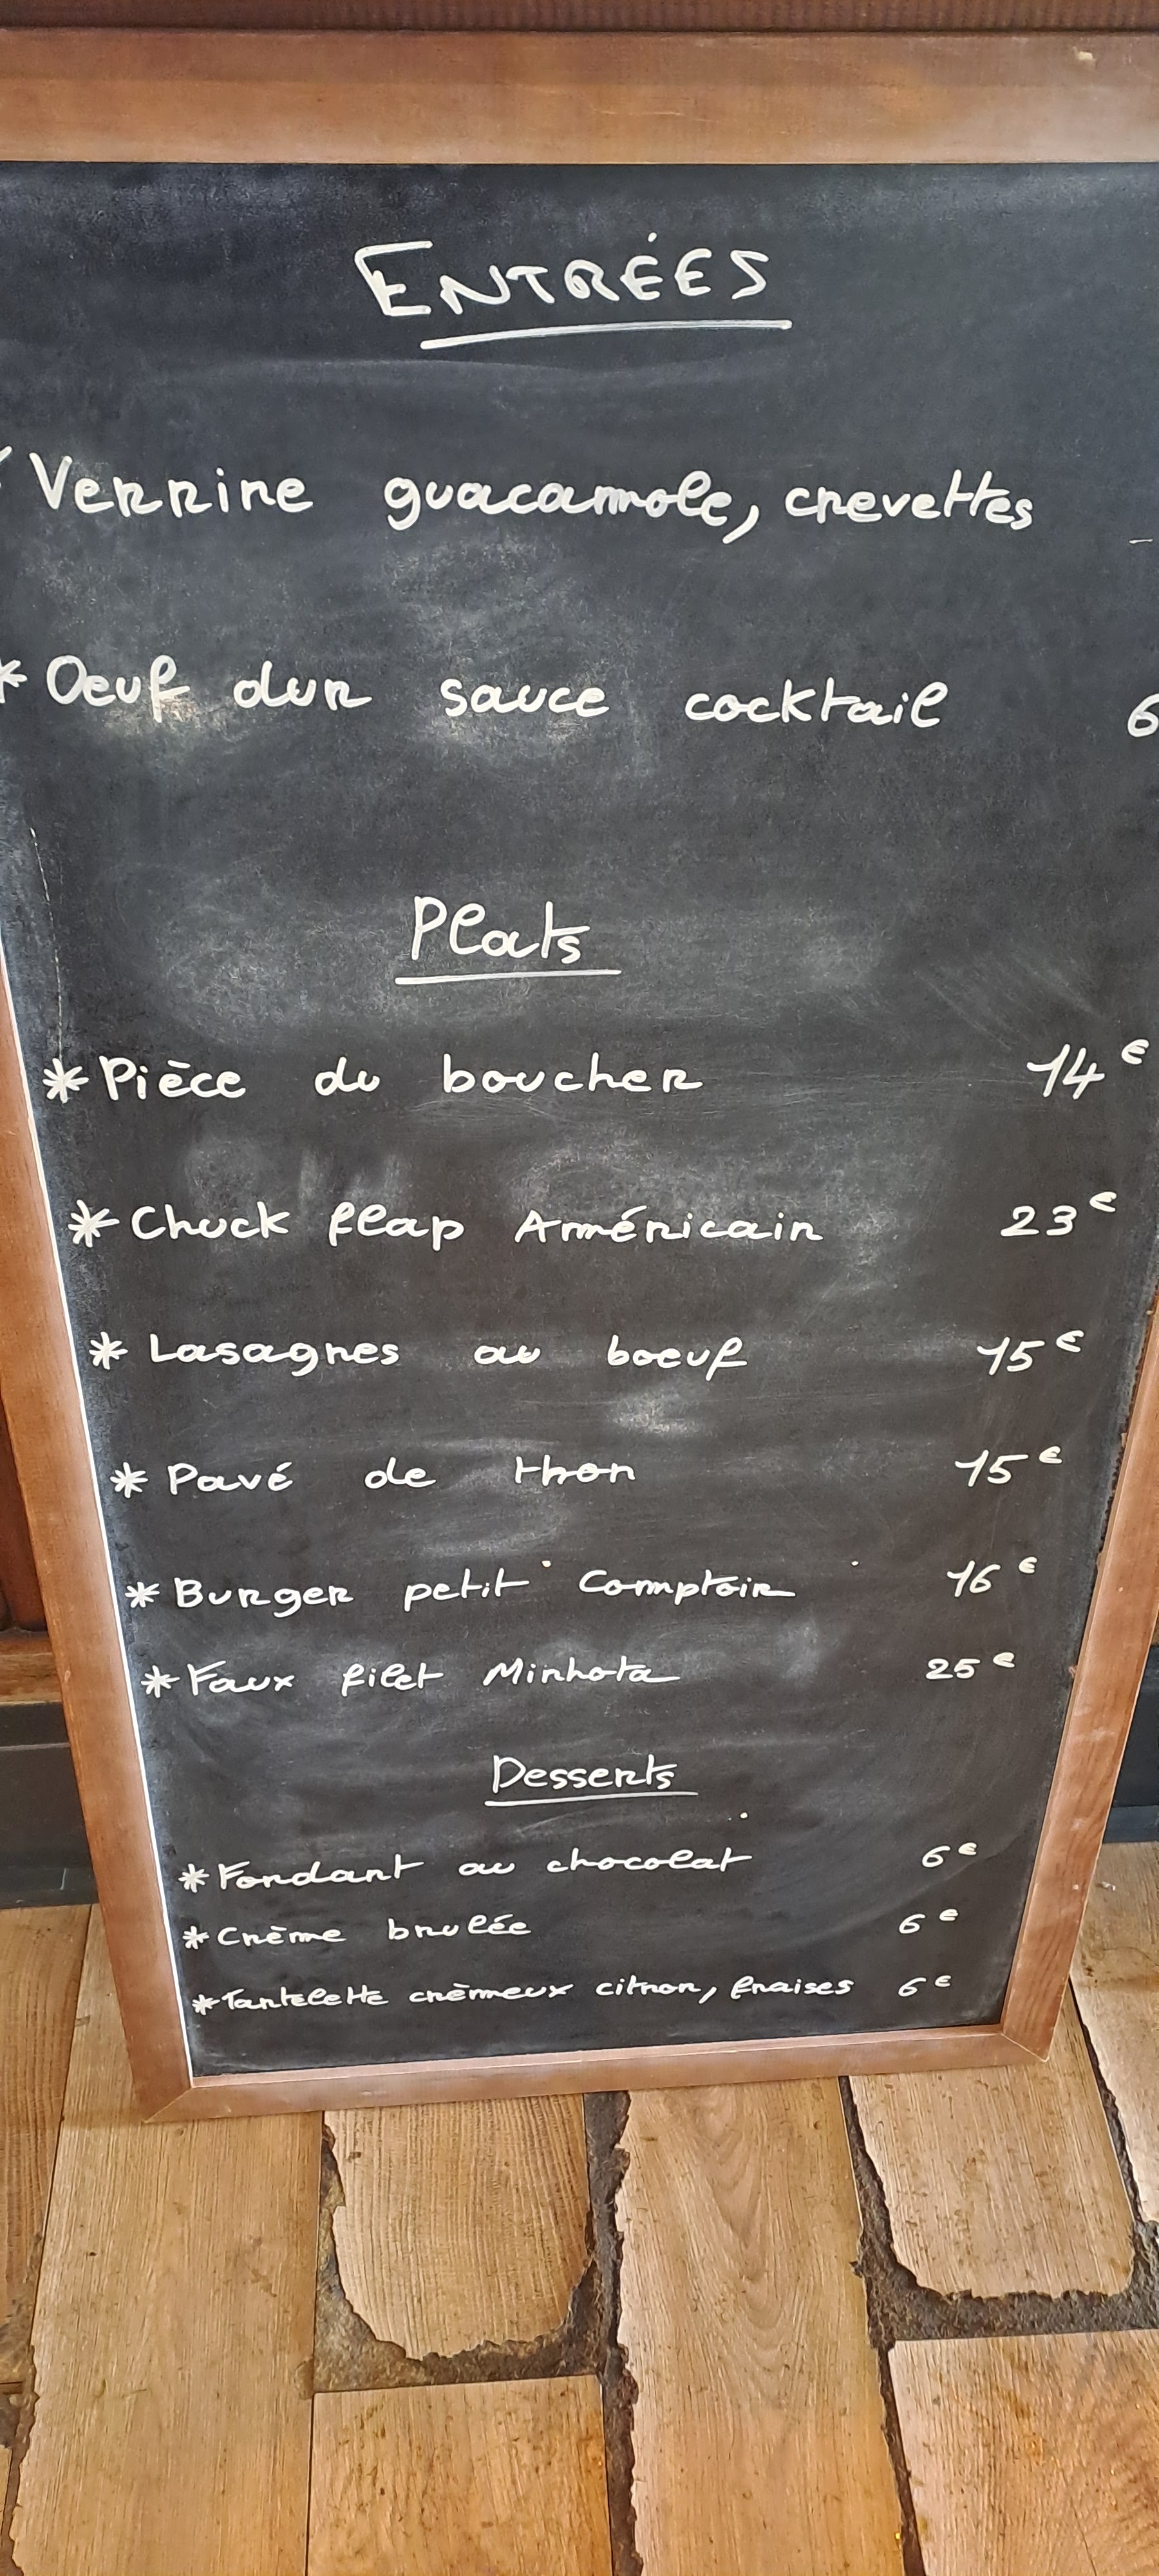 ENTRÉES
Verrine guacamole, crevettes
* Oeuf dur sauce cocktail 6
Plats
* Pièce du boucher 14€
* Chuck flap Américain 23€
* Lasagnes au boeuf 15€
* Pavé de thon 15€
* Burger petit Comptoir 16€
* Faux filet Minhota 25€
Desserts
* Fondant au chocolat 6€
* Crème brulée 6€
* Tartelette crèmeux citron, fraises 6€